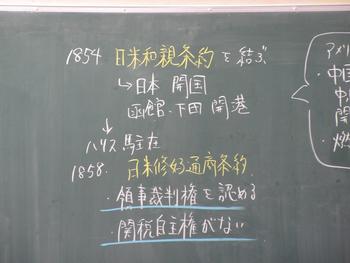 1854 日米和親条約を結ぶ
↳日本 開国
函館・下田 開港
↓
ハリス 駐在
1858. 日米修好通商条約
・領事裁判権を認める
・関税自主権がない
アメリ
・中国
中
開
・燃